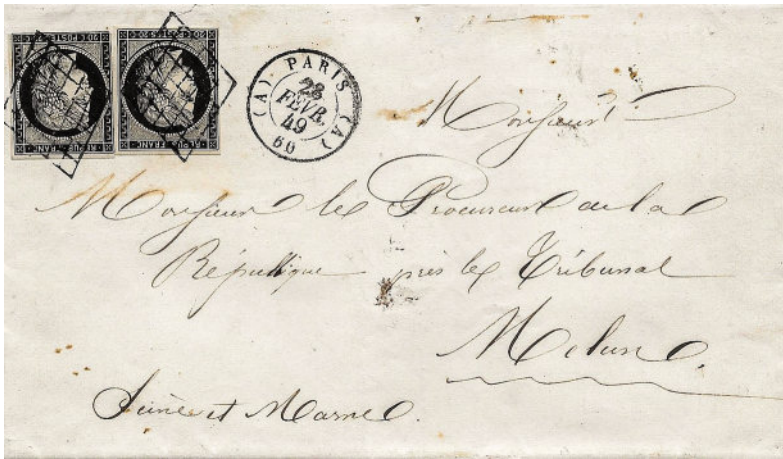 20 c POSTES 20 c
REPUB. FRANC
20 c POSTES 20 c
REPUB. FRANC
(A) PARIS (A)
28
FEVR.
49
60
Monsieur
Monsieur le Procureur de la
République près le Tribunal
Melun.
Seine et Marne.